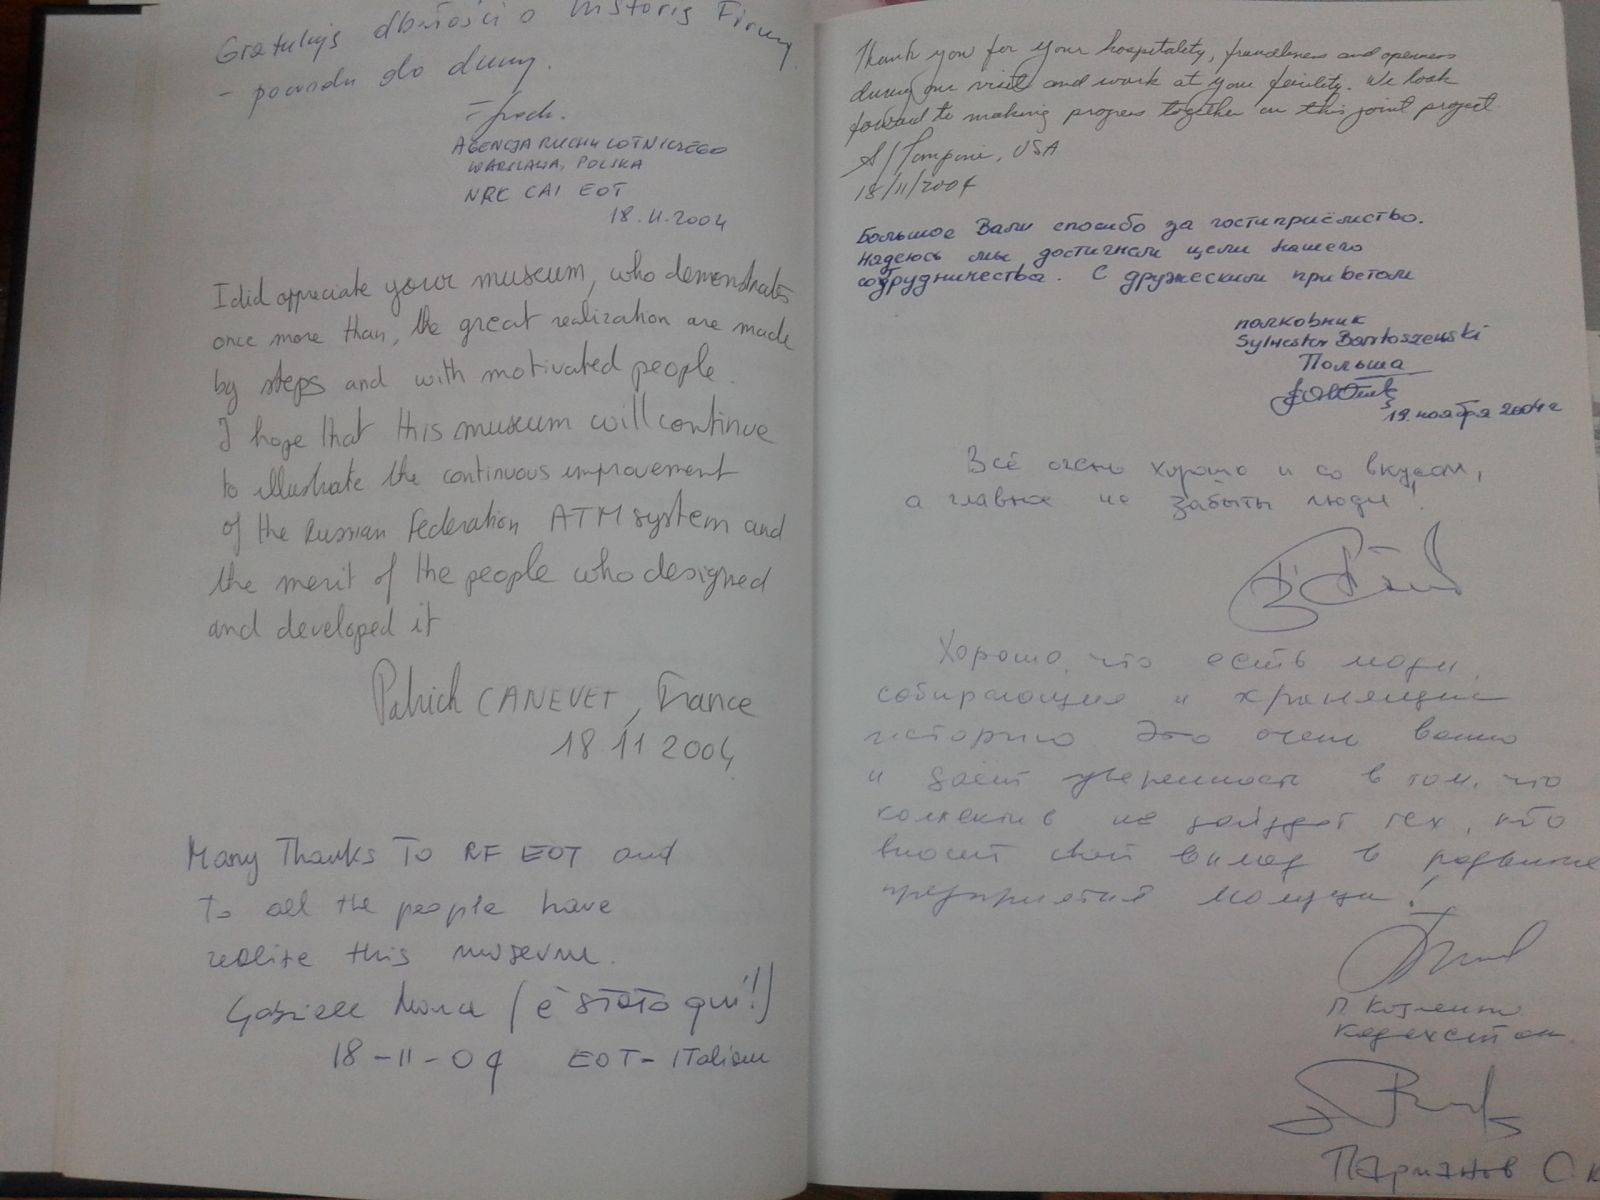 Gratuluję dbałości o historię Firmy
- powodu do dumy.
AGENCJA RUCHU LOTNICZEGO
WARSZAWA, POLSKA
NRC CAI EOT
18.11.2004
I did appreciate your museum, who demonstrates
once more than, the great realization are made
by steps and with motivated people.
I hope that this museum will continue
to illustrate the continuous improvement
of the Russian Federation ATM system and
the merit of the people who designed
and developed it
Patrick CANEVET, France
18.11 2004
Many Thanks To RF EOT and
To all the people have
realize this museum.
Gabriele Mora (è stato qui!!)
18-11-04 EOT-ITalian
Thank you for your hospitality, friendliness and openness
during our visit and work at your facility. We look
forward to making progress together on this joint project
USA
18/11/2004
Большое Вам спосибо за гостиприёмство.
Надеюсь мы достигнем цели нашего
сотрудничества. С дружеским приветом
полковник
Sylwester Bartoszewski
Польша
19. ноября 2004 г
Всё очень хорошо и со вкусом,
а главное не забыты люди!
Хорошо, что есть люди,
собирающие и хранящие
историю Это очень важно
и даёт уверенность в том, что
коллектив не забудет тех, кто
вносит свой вклад в развитие
предприятия
П. Козленко
Казахстан
Парманов С.К